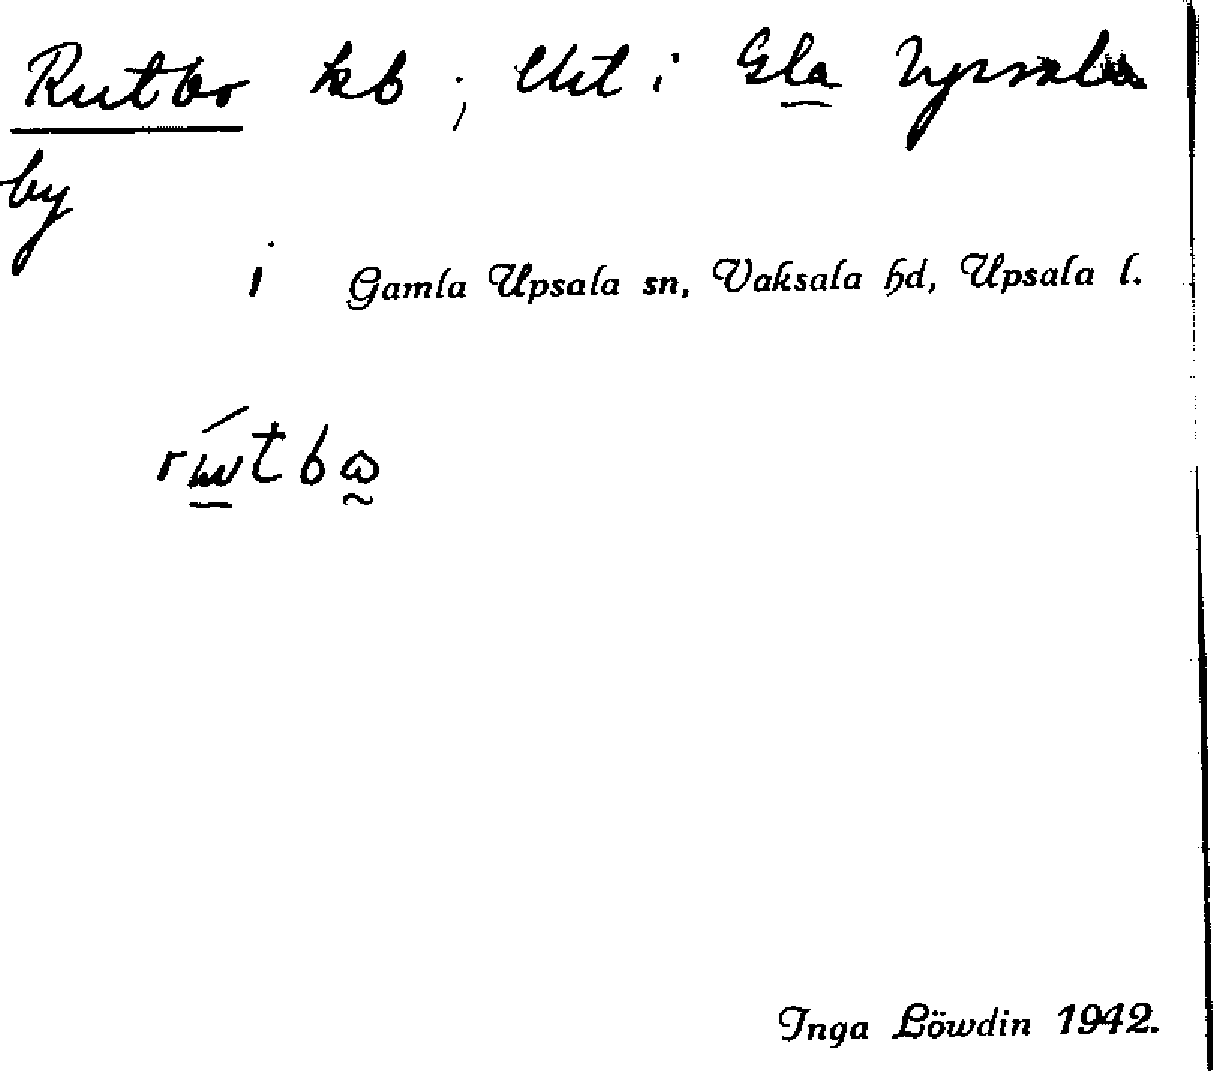 Rutbo kb; Ut i Gla Upsala
by
i Gamla Upsala sn, Vaksala hd, Upsala l.
Inga Löwdin 1942.